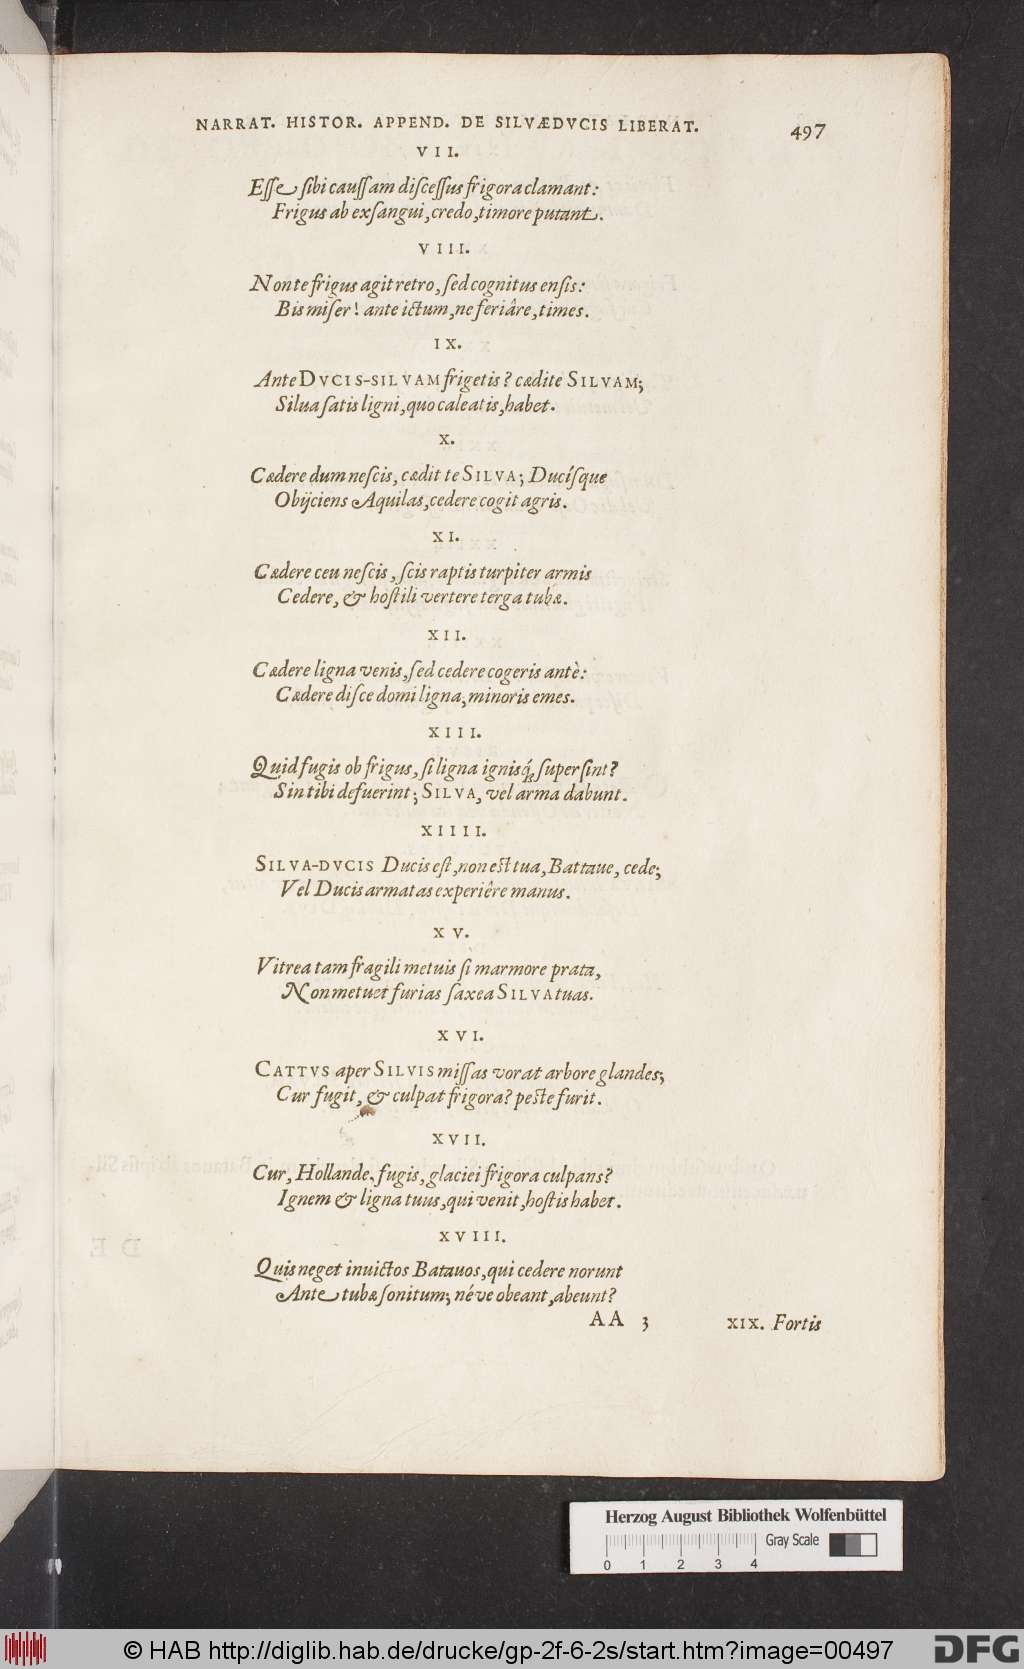 NARRAT. HISTOR. APPEND. DE SILVÆDVCIS LIBERAT. 497
VII.
Eſſe ſibi cauſſam diſceſſus frigora clamant:
Frigus ab exſangui, credo, timore putant.
VIII.
Non te frigus agit retro, ſed cognitus enſis:
Bis miſer! ante ictum, ne feriâre, times.
IX.
Ante DVCIS-SILVAM frigetis? cædite SILVAM;
Silua ſatis ligni, quo caleatis, habet.
X.
Cædere dum neſcis, cædit te SILVA; Ducíſque
Obijciens Aquilas, cedere cogit agris.
XI.
Cædere ceu neſcis, ſcis raptis turpiter armis
Cedere, & hoſtili vertere terga tubæ.
XII.
Cædere ligna venis, ſed cedere cogeris antè:
Cædere diſce domi ligna, minoris emes.
XIII.
Quid fugis ob frigus, ſi ligna ignisq́; ſuperſint?
Sin tibi defuerint; SILVA, vel arma dabunt.
XIIII.
SILVA-DVCIS Ducis eſt, non eſt tua, Battaue, cede;
Vel Ducis armatas experiêre manus.
XV.
Vitrea tam fragili metuis ſi marmore prata,
Non metuet furias ſaxea SILVA tuas.
XVI.
CATTVS aper SILVIS miſſas vorat arbore glandes;
Cur fugit, & culpat frigora? peſte furit.
XVII.
Cur, Hollande, fugis, glaciei frigora culpans?
Ignem & ligna tuus, qui venit, hoſtis habet.
XVIII.
Quis neget inuictos Batauos, qui cedere norunt
Ante tubæ ſonitum; néve obeant, abeunt?
AA 3 XIX. Fortis
Herzog August Bibliothek Wolfenbüttel
Gray Scale
0 1 2 3 4
© HAB http://diglib.hab.de/drucke/gp-2f-6-2s/start.htm?image=00497
DFG